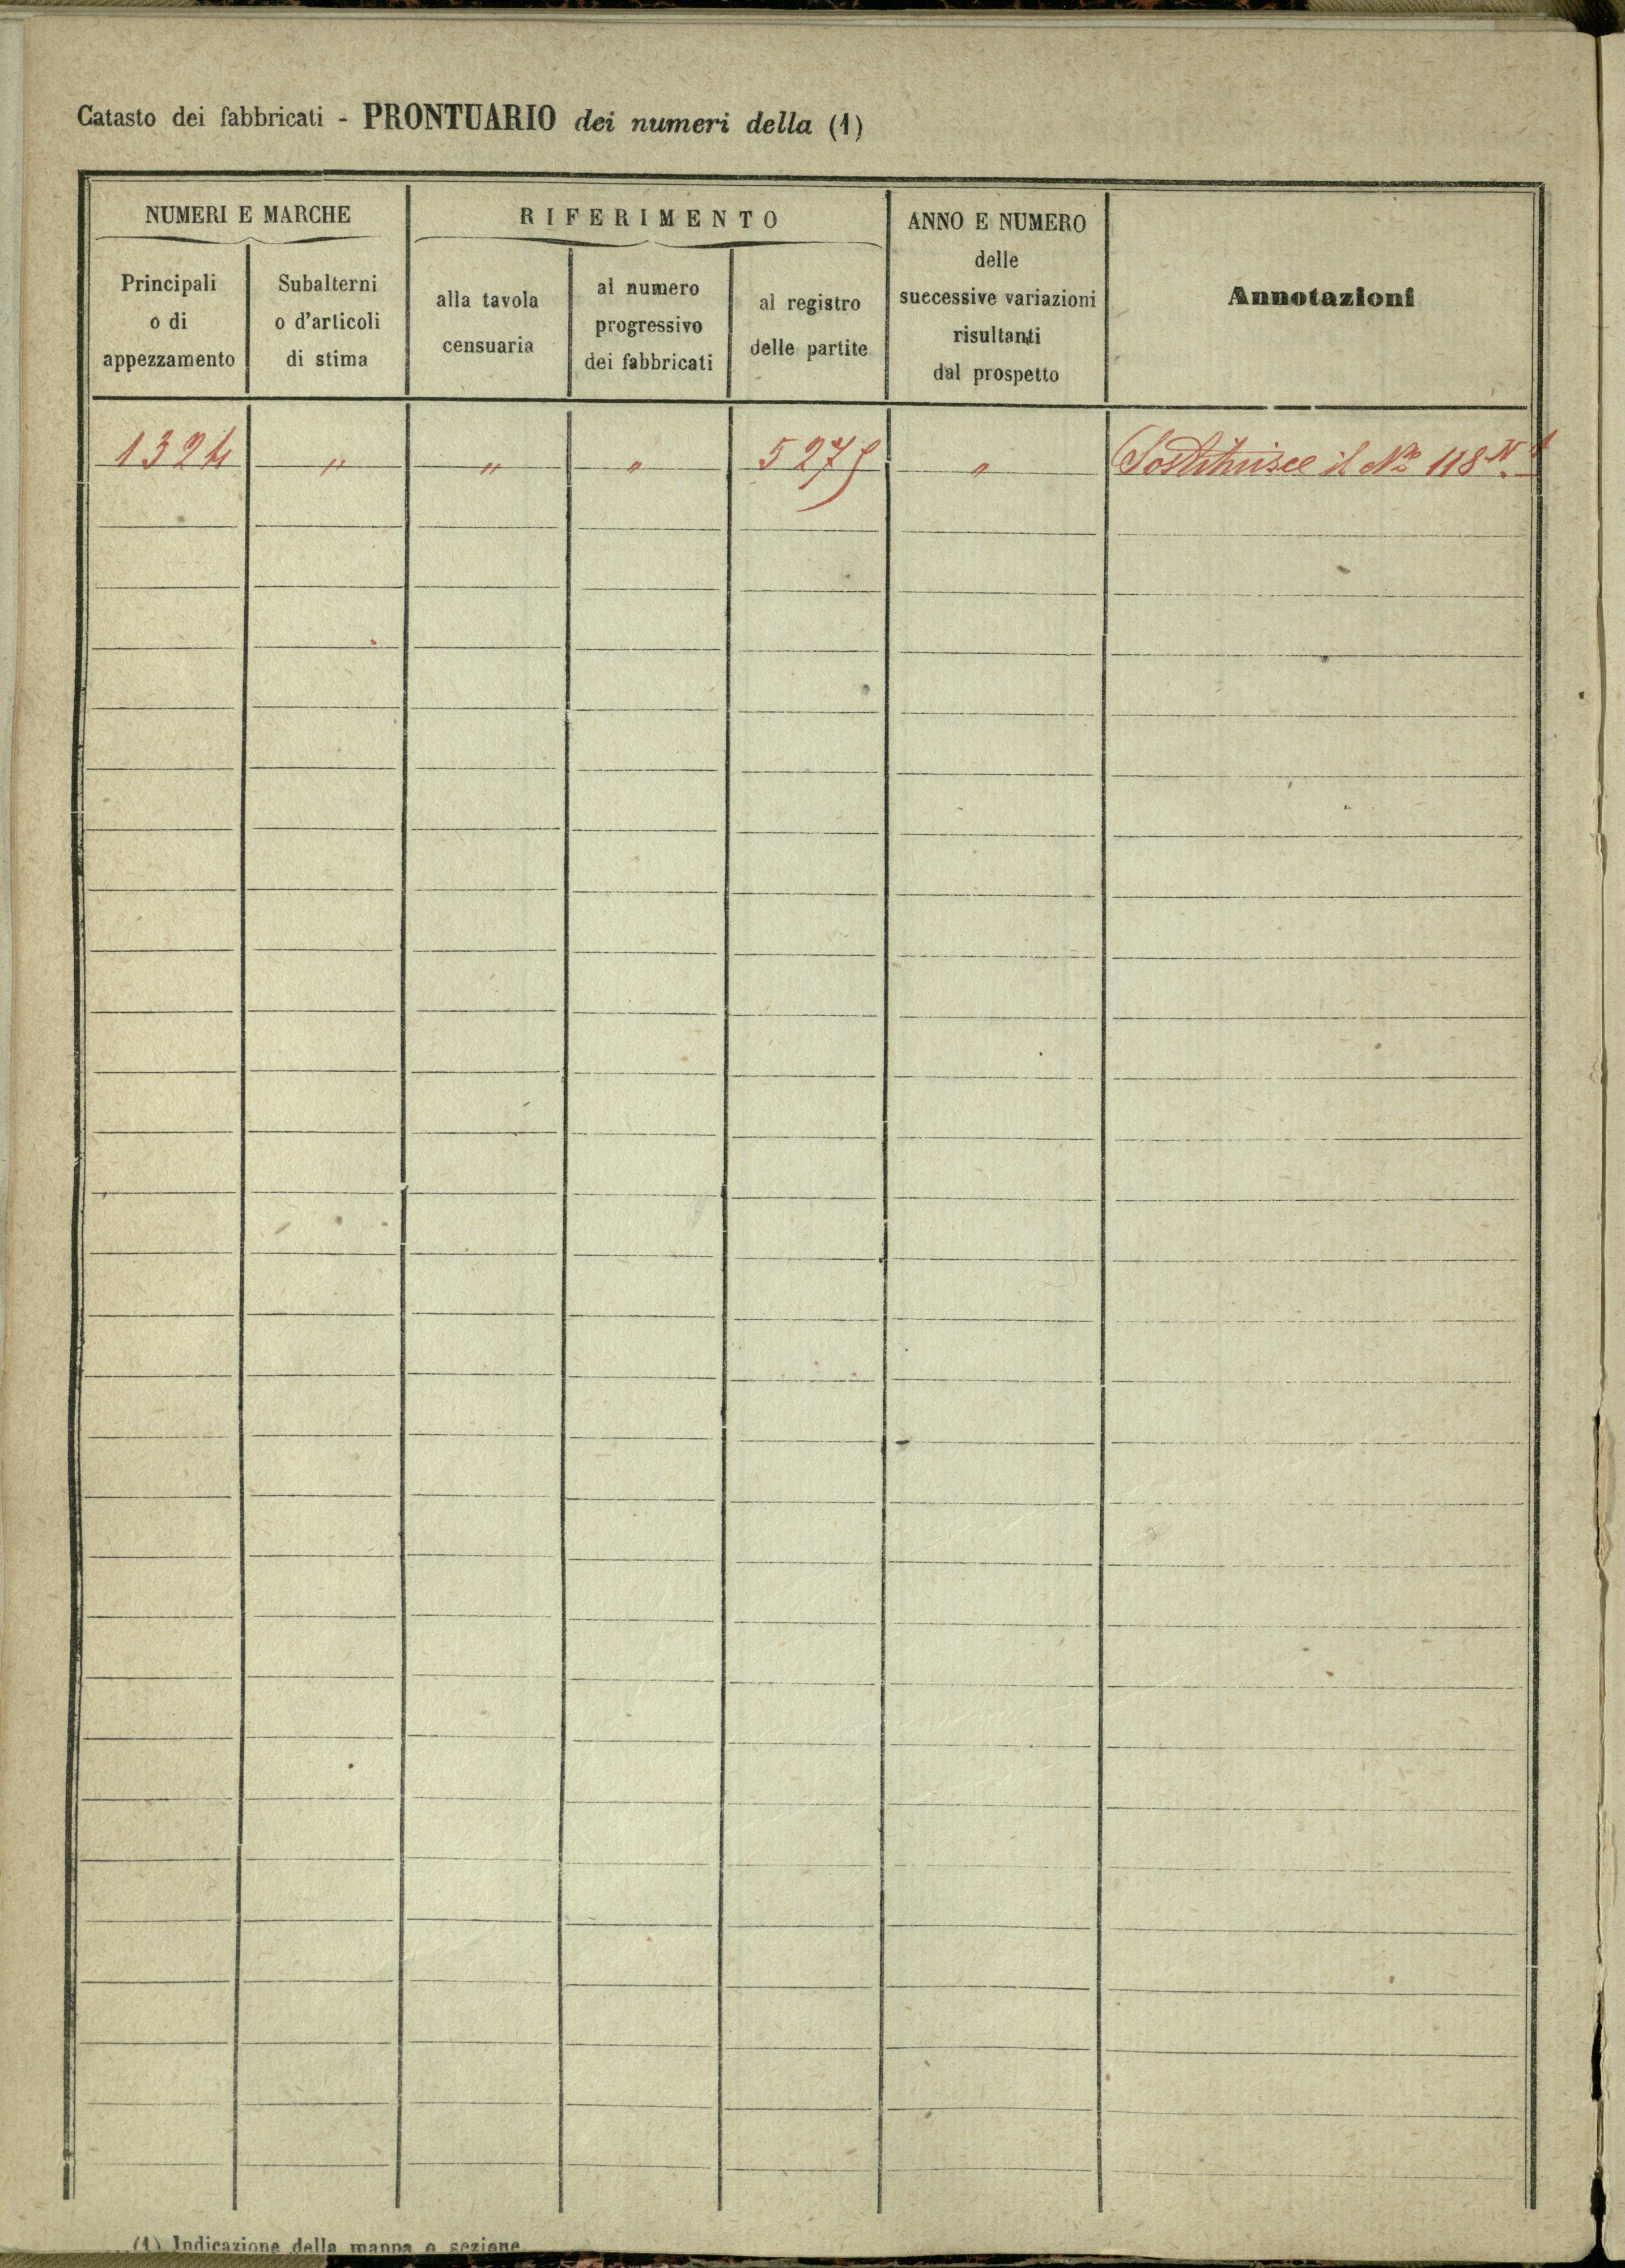 Catasto dei fabbricati - PRONTUARIO dei numeri della (1)
NUMERI E MARCHE
Principali
o di
appezzamento
Subalterni
o d'articoli
di stima
RIFERIMENTO
alla tavola
censuaria
al numero
progressivo
dei fabbricati
al registro
delle partite
ANNO E NUMERO
delle
successive variazioni
risultanti
dal prospetto
Annotazioni
1324 " " " 5275 " Sostituisce il No 118
(1) Indicazione della mappa o sezione